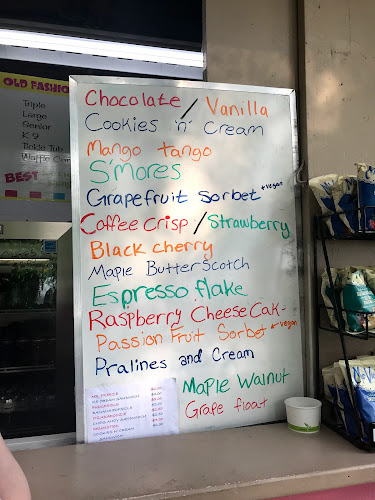 OLD FASHIO
Triple
Large
Senior
K-9
Tickle Tub
Waffle Con
BEST
Chocolate / Vanilla
Cookies 'n' Cream
Mango tango
S'mores
Grapefruit sorbet *vegan
Coffee Crisp / Strawberry
Black cherry
Maple Butterscotch
Espresso flake
Raspberry CheeseCak-
Passion Fruit Sorbet *vegan
Pralines and Cream
Maple Walnut
Grape float
ICE CREAM SANDWICH